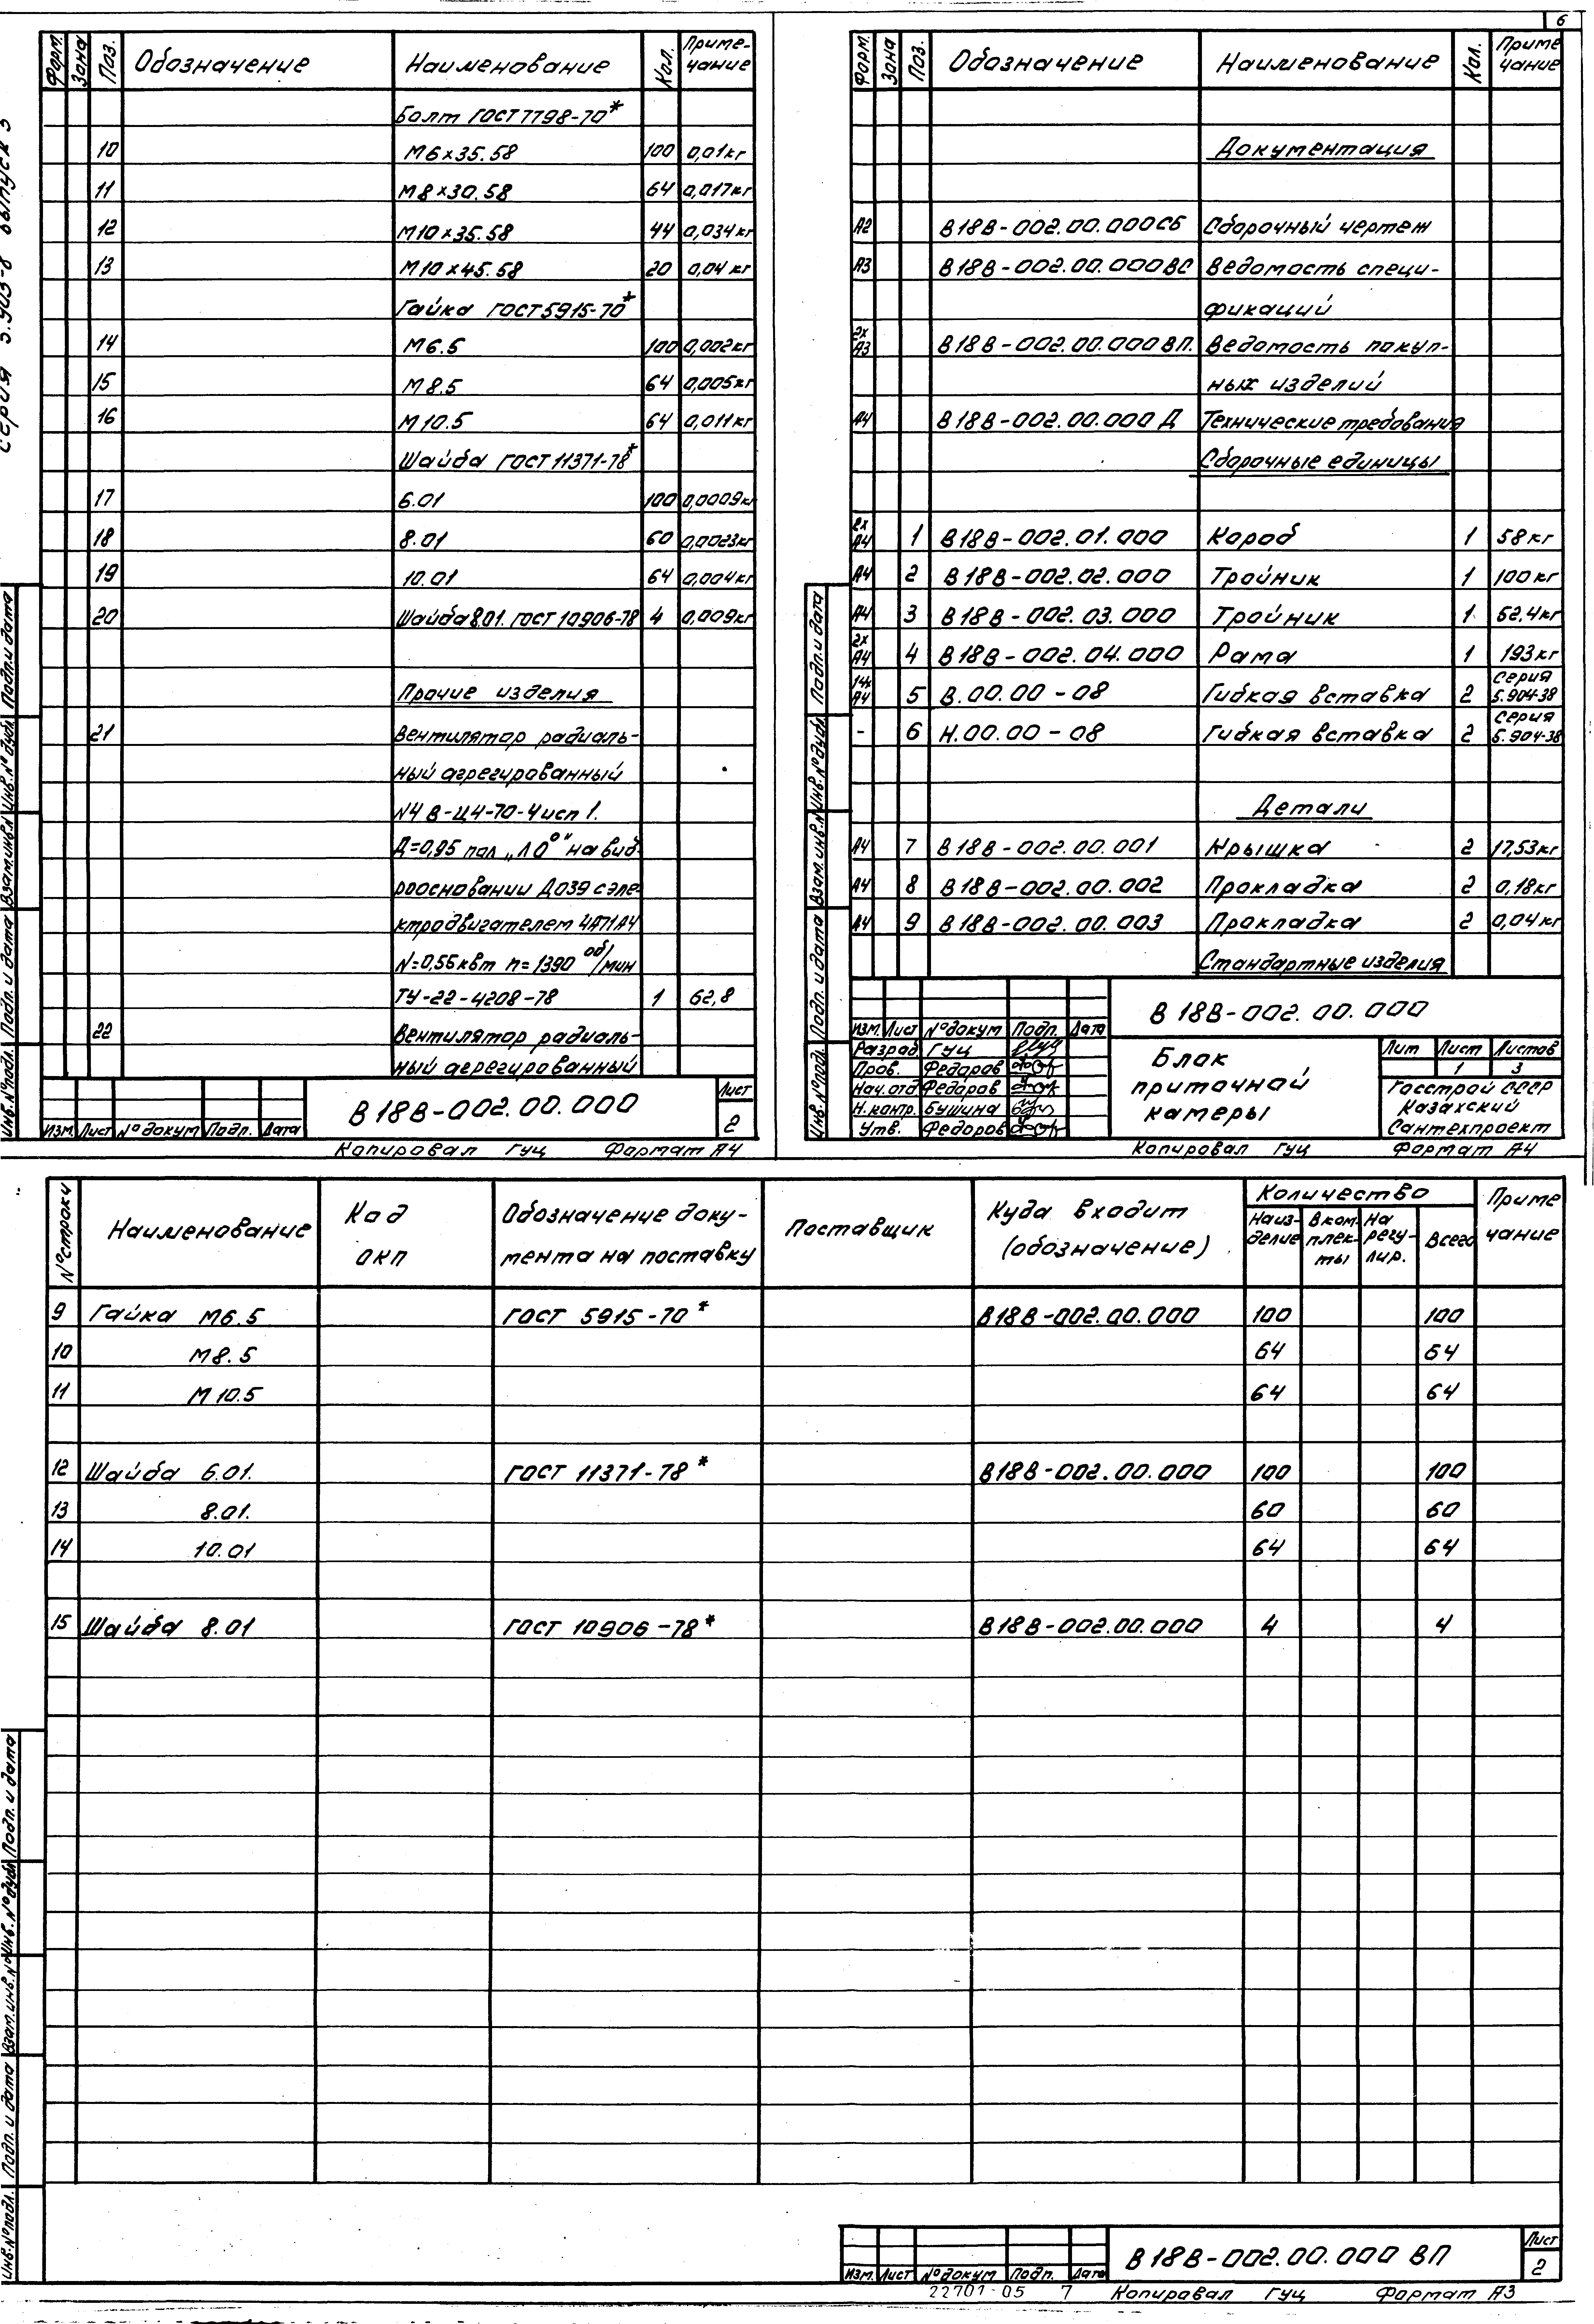 6
Серия 5.903-8 выпуск 3
Форм. Зона Поз. Обозначение Наименование Кол. Приме-
чание
Болт ГОСТ 7798-70*
10 М6×35.58 100 0,01кг
11 М8×30.58 64 0,017кг
12 М10×35.58 44 0,034кг
13 М10×45.58 20 0,04 кг
Гайка ГОСТ 5915-70*
14 М6.5 100 0,002кг
15 М8.5 64 0,005кг
16 М10.5 64 0,011кг
Шайба ГОСТ 11371-78*
17 6.01 100 0,0009кг
18 8.01 60 0,0023кг
19 10.01 64 0,004кг
20 Шайба 8.01. ГОСТ 10906-78 4 0,009кг
Прочие изделия
21 Вентилятор радиаль-
ный агрегированный
N4 В-Ц4-70-4 исп 1.
Д=0,95 пол „Л0°" на виб-
роосновании Д039 с эле-
ктродвигателем 4А71А4
N=0,55квт n=1390 об/мин
ТУ-22-4208-78 1 62,8
22 Вентилятор радиаль-
ный агрегированный
Изм. Лист № докум Подп. Дата
В18В-002.00.000
Лист
2
Копировал Гуц Формат А4
Инв.№подл. Подп. и дата Взам.инв.№ Инв.№дубл. Подп.и дата
Форм. Зона Поз. Обозначение Наименование Кол. Приме
чание
Документация
А2 В18В-002.00.000СБ Сборочный чертеж
А3 В18В-002.00.000ВС Ведомость специ-
фикаций
2х
А3 В18В-002.00.000ВП. Ведомость покуп-
ных изделий
А4 В18В-002.00.000 Д Технические требования
Сборочные единицы
2х
А4 1 В18В-002.01.000 Короб 1 58кг
А4 2 В18В-002.02.000 Тройник 1 100кг
А4 3 В18В-002.03.000 Тройник 1 62,4кг
2х
А4 4 В18В-002.04.000 Рама 1 193кг
14х
А4 5 В.00.00-08 Гибкая вставка 2 Серия
5.904-38
- 6 Н.00.00-08 Гибкая вставка 2 Серия
5.904-38
Детали
А4 7 В18В-002.00.001 Крышка 2 17,53кг
А4 8 В18В-002.00.002 Прокладка 2 0,18кг
А4 9 В18В-002.00.003 Прокладка 2 0,04кг
Стандартные изделия
В18В-002.00.000
Изм. Лист № докум Подп. Дата
Разраб. Гуц
Пров. Федоров
Нач.отд Федоров
Н.контр. Бушина
Утв. Федоров
Блок
приточной
камеры
Лит Лист Листов
1 3
Госстрой СССР
Казахский
Сантехпроект
Копировал Гуц Формат А4
Инв.№подл. Подп. и дата Взам.инв.№ Инв.№дубл. Подп.и дата
№строки Наименование Код
ОКП Обозначение доку-
мента на поставку Поставщик Куда входит
(обозначение) Количество Приме
чание
На из-
делие В ком-
плек-
ты На
регу-
лир. Всего
9 Гайка М6.5 ГОСТ 5915-70* В18В-002.00.000 100 100
10 М8.5 64 64
11 М10.5 64 64
12 Шайба 6.01. ГОСТ 11371-78* В18В-002.00.000 100 100
13 8.01. 60 60
14 10.01 64 64
15 Шайба 8.01 ГОСТ 10906-78* В18В-002.00.000 4 4
Инв.№подл. Подп. и дата Взам.инв.№ Инв.№дубл. Подп. и дата
Изм. Лист № докум Подп. Дата
В18В-002.00.000 ВП
Лист
2
22701-05 7 Копировал Гуц Формат А3